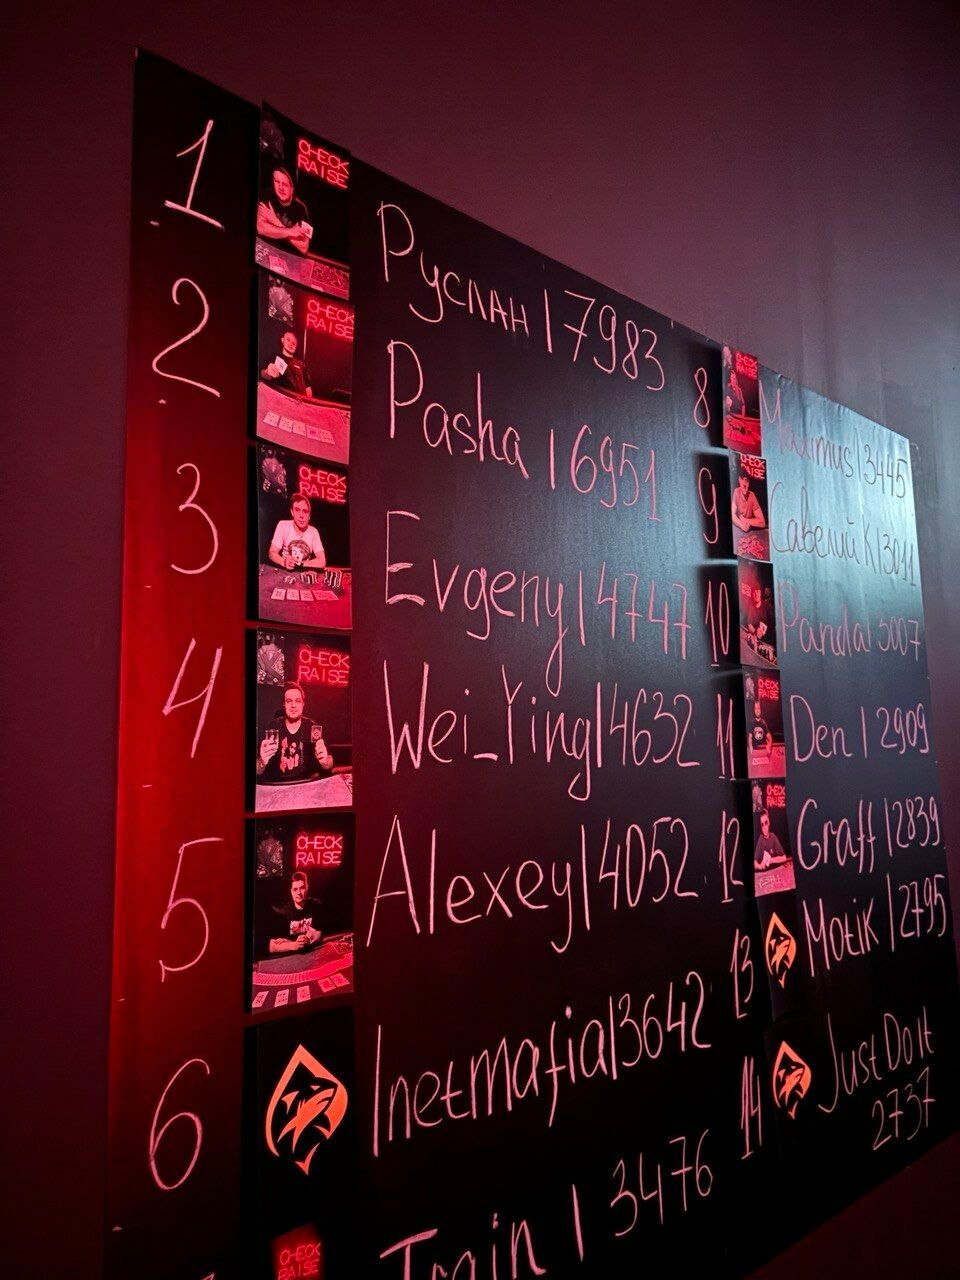 1
CHECK
RAISE
Руслан | 7983
2
CHECK
RAISE
Pasha | 6951
3
CHECK
RAISE
Evgeny | 4747
4
CHECK
RAISE
Wei_Ying | 4632
5
CHECK
RAISE
Alexey | 4052
6
Inetmafia | 3642
CHECK
RAISE
Train | 3476
8
CHECK
RAISE
Maximus | 3445
9
CHECK
RAISE
Савелий К | 3011
10
CHECK
RAISE
Panda | 3007
11
CHECK
RAISE
Den | 2909
12
CHECK
RAISE
Graff | 2839
13
Motik | 2795
14
Just Do It
2737